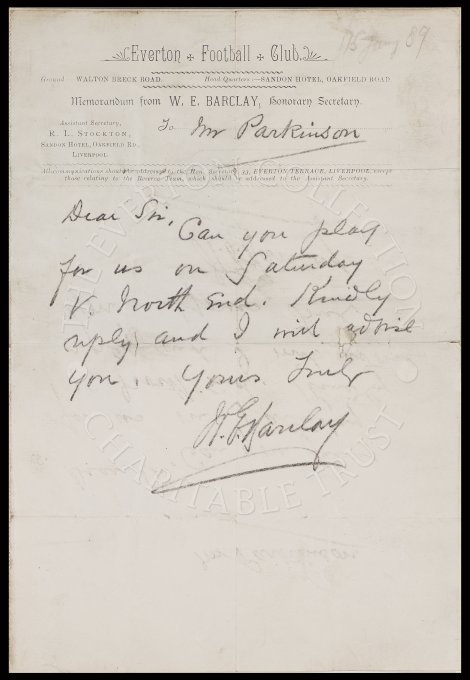 15 Jany 89
Everton Football Club.
Ground WALTON BRECK ROAD. Head Quarters:—SANDON HOTEL, OAKFIELD ROAD
Memorandum from W. E. BARCLAY, Honorary Secretary.
Assistant Secretary,
R. L. STOCKTON,
SANDON HOTEL, OAKFIELD RD.,
LIVERPOOL.
To Mr Parkinson
All communications should be addressed to the Hon. Secretary, 33, EVERTON TERRACE, LIVERPOOL, except
those relating to the Reserve Team, which should be addressed to the Assistant Secretary.
Dear Sir,
Can you play
for us on Saturday
V. North End. Kindly
reply and I will advise
you Yours Truly
W. E. Barclay
THE EVERTON COLLECTION
CHARITABLE TRUST